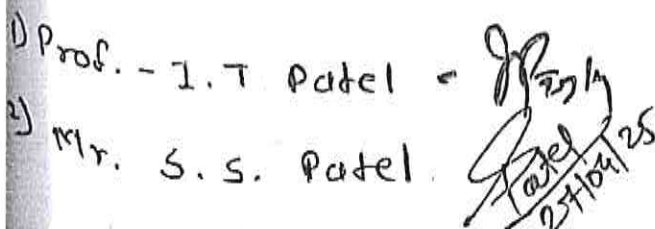 1) Prof. - I.T Patel -
2) Mr. S.S. Patel. Patel
27/04/25